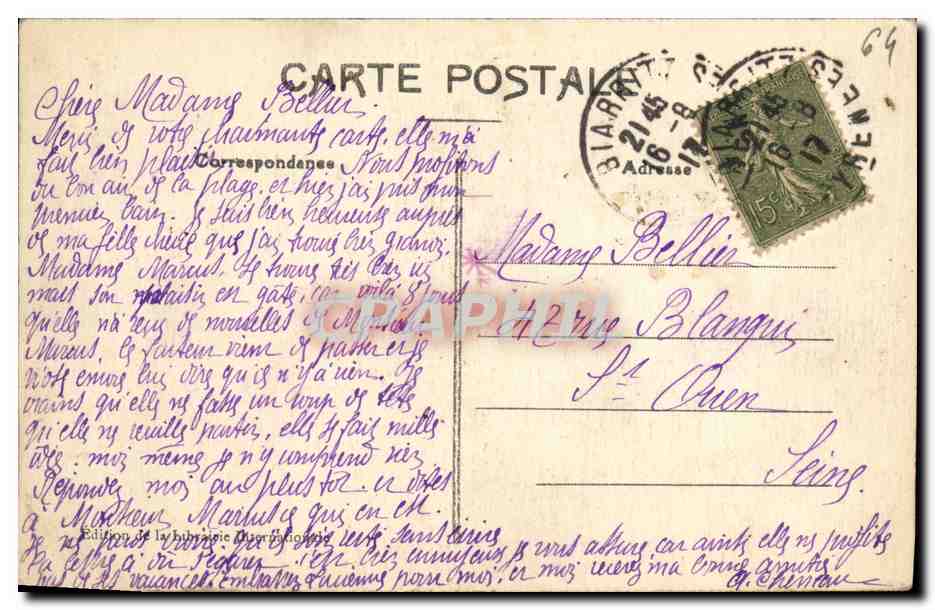 64
CARTE POSTALE
BIARRITZ
21 45
16 - 8
17
BIARRITZ
21 45
16 - 8
17
PYRENEES
15 c
Correspondance
Adresse
Chère Madame Bellier.
Merci de votre charmante carte, elle m'a
fait bien plaisir. Nous profitons
du bon air de la plage, et hier j'ai pris mon
premier bain. Je suis bien heureuse auprès
de ma fille chérie que j'ai trouvé bien grandi.
Madame Marius se trouve très bien ici
mais son plaisir est gâté, car voilà 8 jours
qu'elle n'a reçu de nouvelles de Monsieur
Marius. Le facteur vient de passer et je
n'ose encore lui dire qu'il n'y a rien. Je
crains qu'elle ne fasse un coup de tête
qu'elle ne veuille partir, elle se fait mille
idées. moi même je n'y comprend rien
Répondez moi au plus tôt et dites
à Monsieur Marius ce qui en est.
Je ne peux croire qu'il soit resté sans écrire
c'est bien ennuyeux je vous assure car ainsi elle ne profite
pas de ses vacances. Embrassez Lucienne pour moi, et moi recevez ma bonne amitié
Madame Bellier
rue Blanqui
St Ouen
Seine
Edition de la Librairie Internationale
CPAPHIL